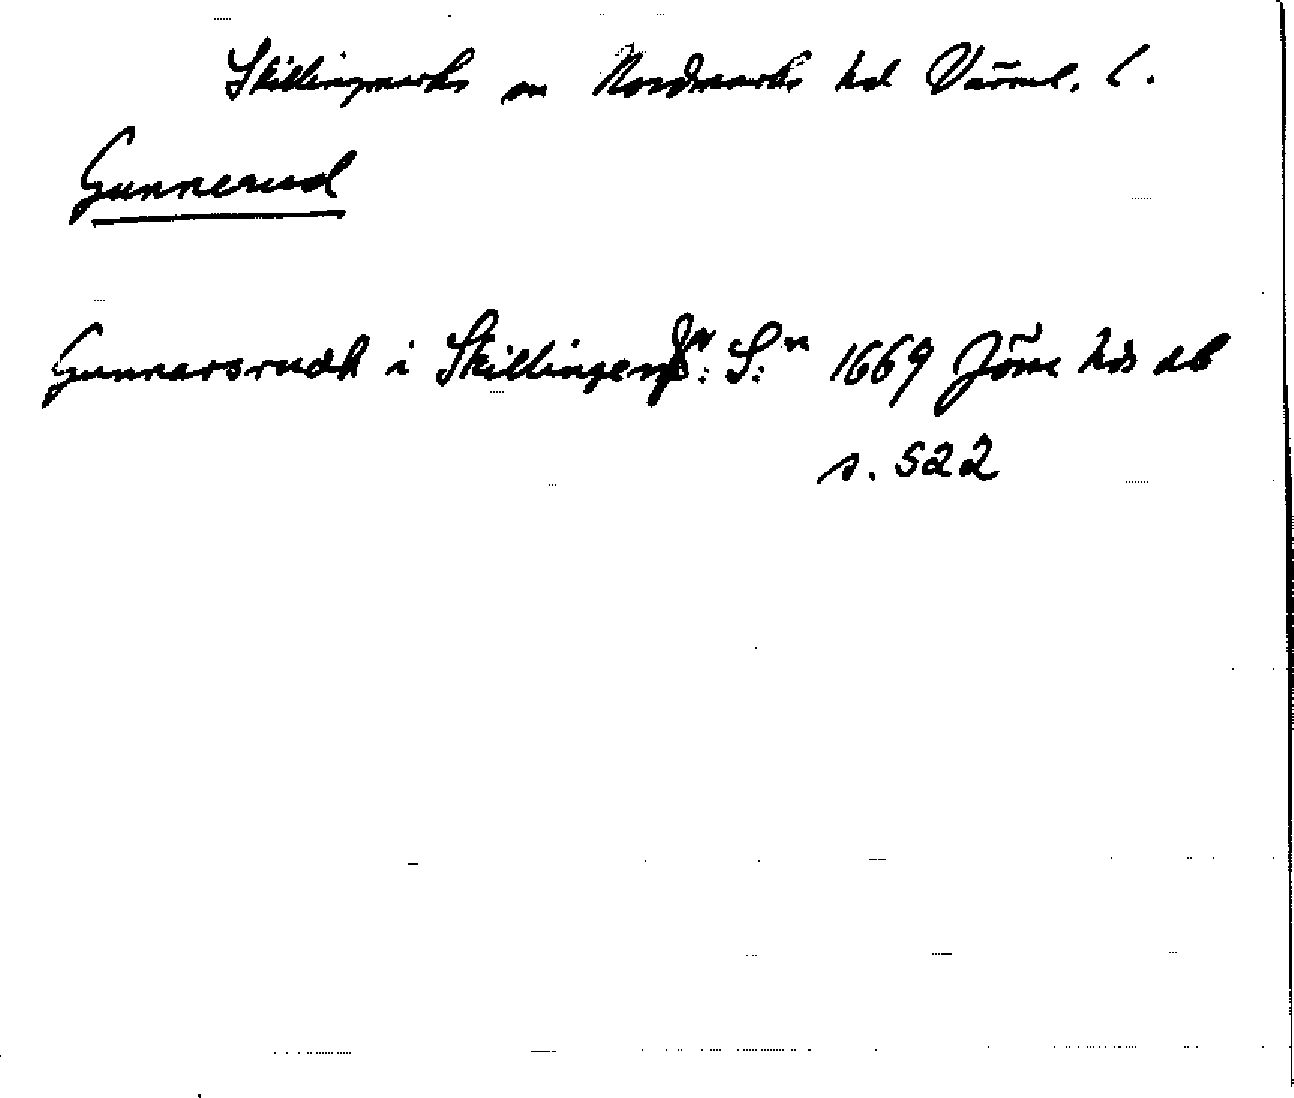 Skillingmarks sn Nordmarks hd Värml. l.
Gunnerud
Gunnarsrudh i Skillingem: S:n 1669 Jösse hds db
s. 522